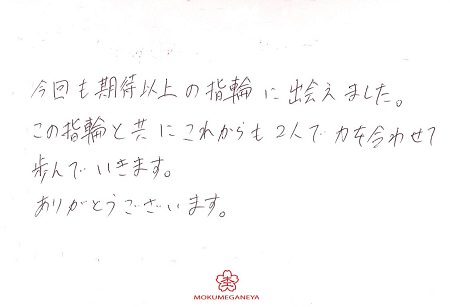 今回も期待以上の指輪に出会えました。
この指輪と共にこれからも2人で力を合わせて
歩んでいきます。
ありがとうございます。
MOKUMEGANEYA